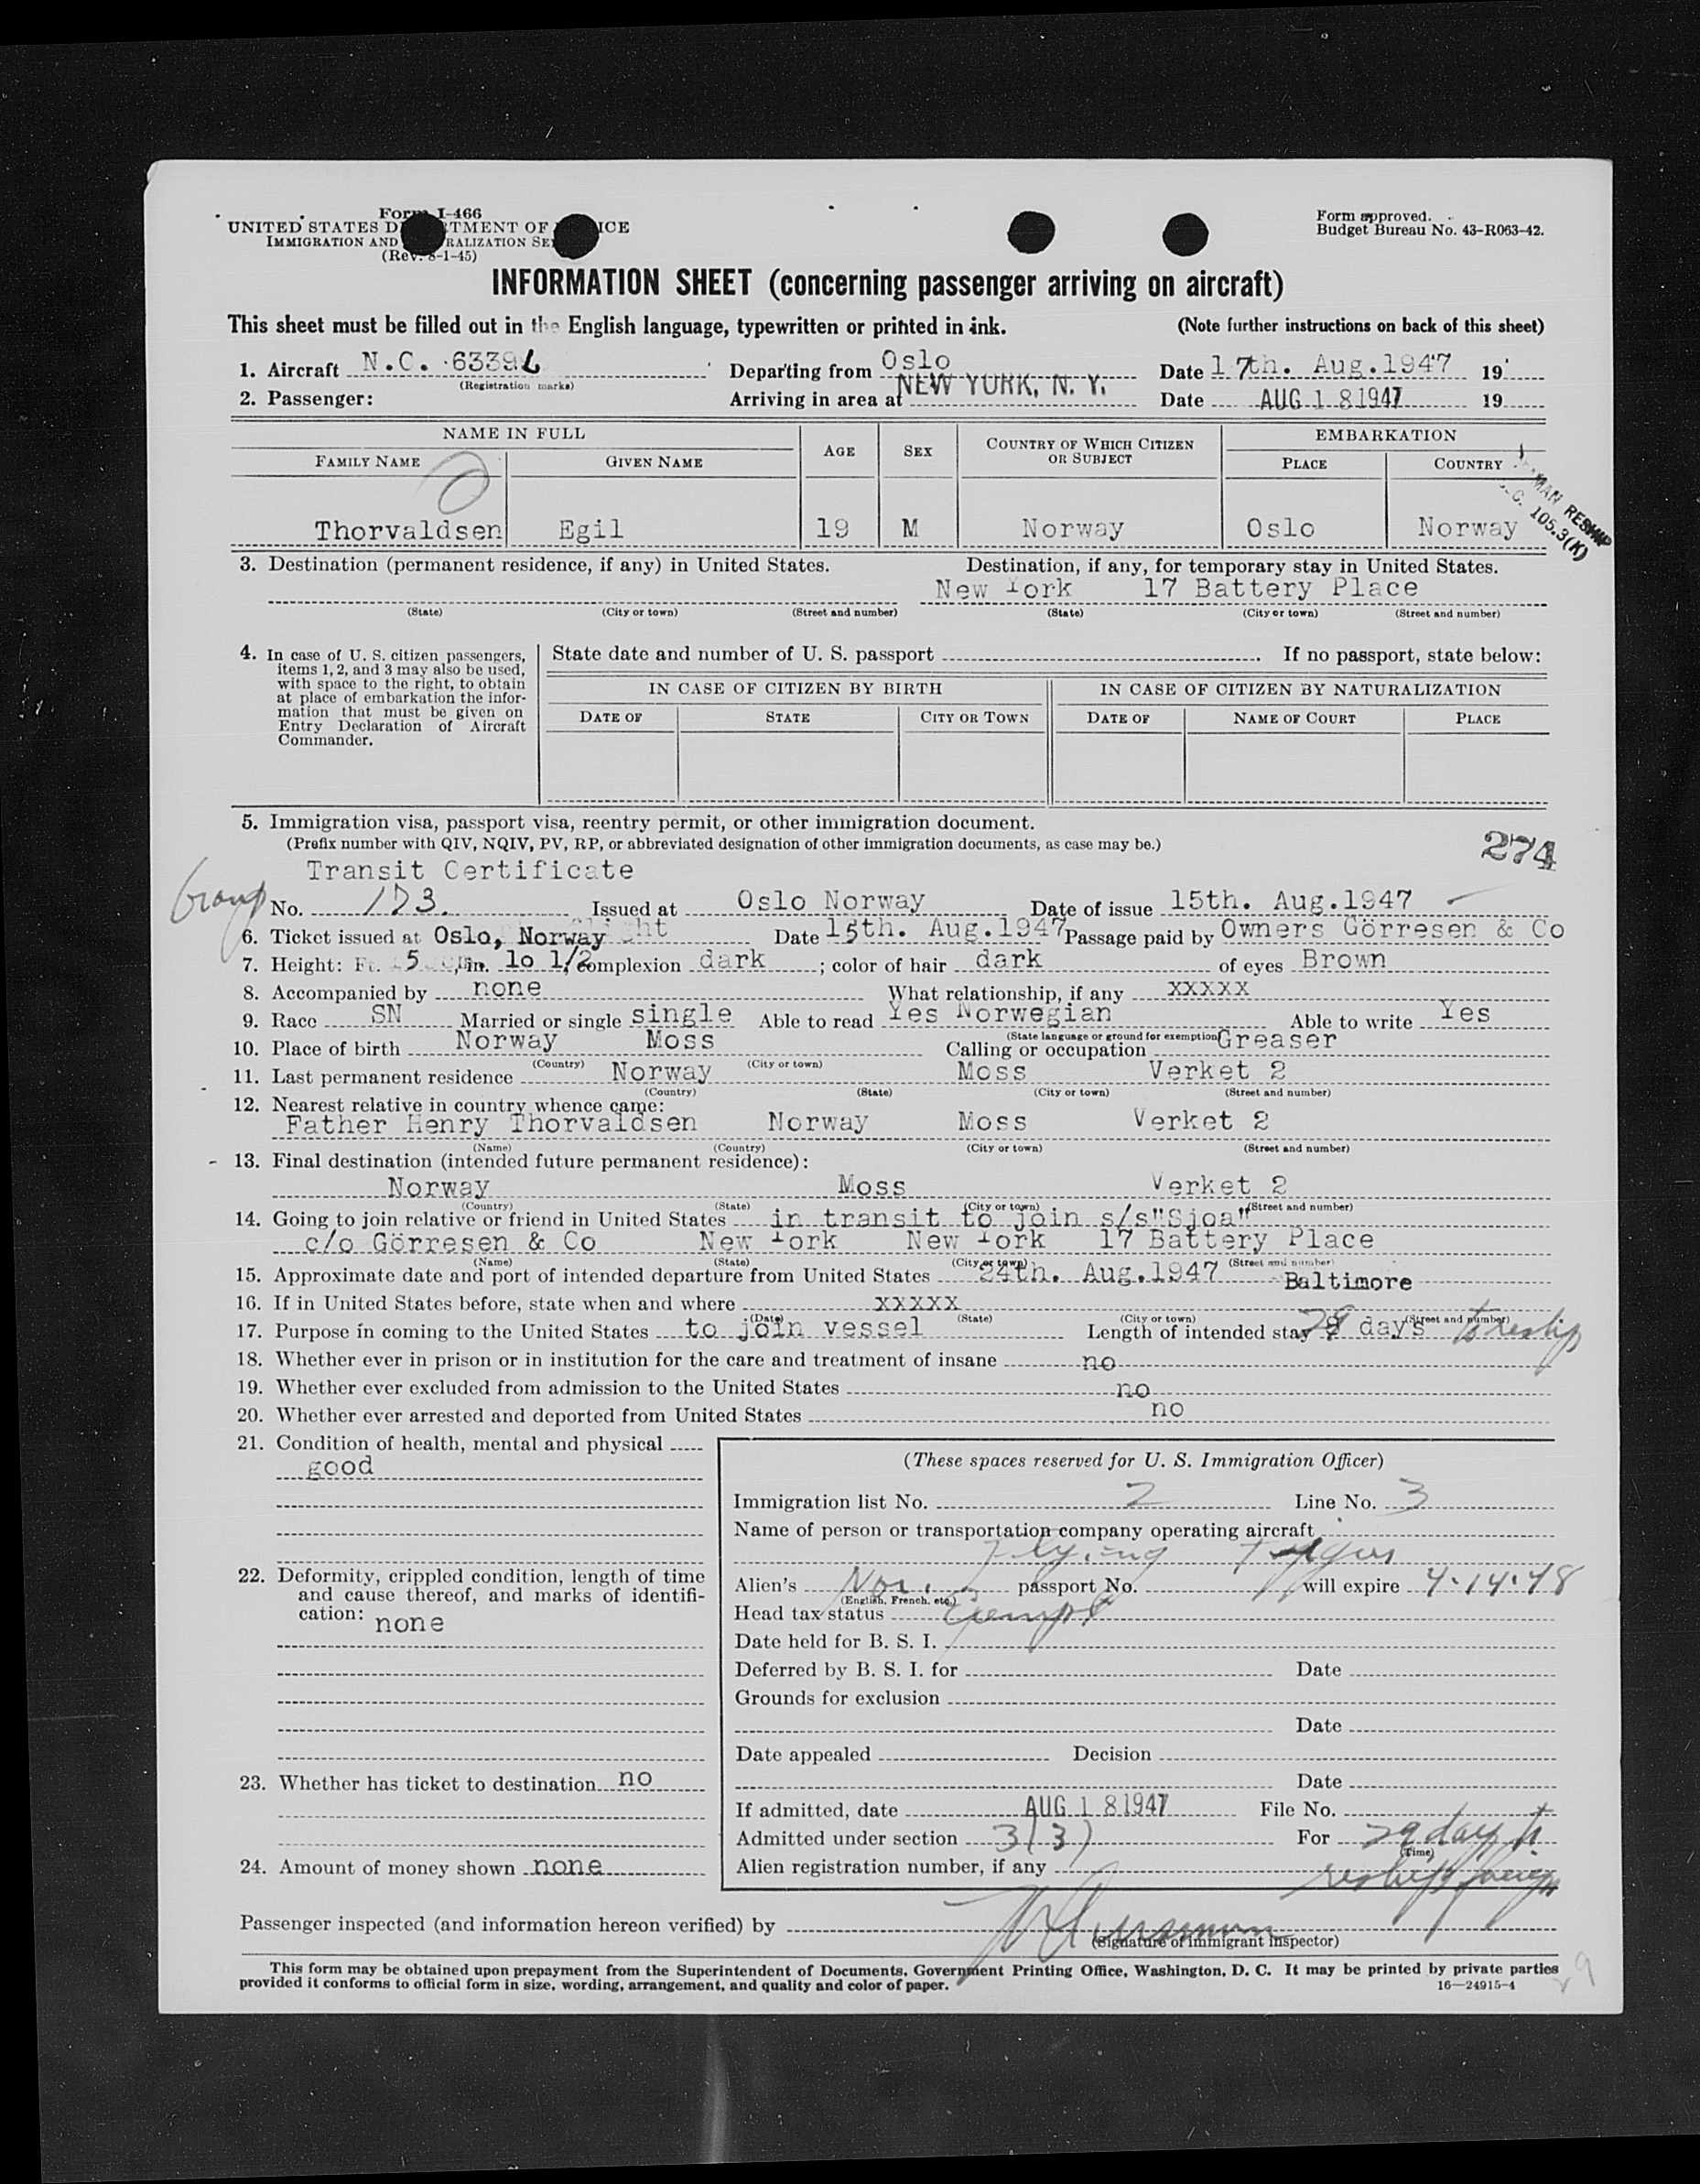 Form I-466
UNITED STATES D TMENT OF ICE
IMMIGRATION AND RALIZATION SE
(Rev. 8-1-45)
Form approved.
Budget Bureau No. 43-R063-42.
INFORMATION SHEET (concerning passenger arriving on aircraft)
This sheet must be filled out in the English language, typewritten or printed in ink. (Note further instructions on back of this sheet)
1. Aircraft N.C. 6339 Departing from Oslo Date 17th. Aug.1947 19
(Registration marks)
2. Passenger: Arriving in area at NEW YORK, N. Y. Date AUG 18 1947 19
NAME IN FULL AGE SEX COUNTRY OF WHICH CITIZEN OR SUBJECT EMBARKATION
FAMILY NAME GIVEN NAME PLACE COUNTRY
MAN RESHIP
105.3(K)
Thorvaldsen Egil 19 M Norway Oslo Norway
3. Destination (permanent residence, if any) in United States. Destination, if any, for temporary stay in United States.
New York 17 Battery Place
(State) (City or town) (Street and number) (State) (City or town) (Street and number)
4. In case of U. S. citizen passengers, items 1, 2, and 3 may also be used, with space to the right, to obtain at place of embarkation the information that must be given on Entry Declaration of Aircraft Commander.
State date and number of U. S. passport If no passport, state below:
IN CASE OF CITIZEN BY BIRTH IN CASE OF CITIZEN BY NATURALIZATION
DATE OF STATE CITY OR TOWN DATE OF NAME OF COURT PLACE
5. Immigration visa, passport visa, reentry permit, or other immigration document.
(Prefix number with QIV, NQIV, PV, RP, or abbreviated designation of other immigration documents, as case may be.)
274
Transit Certificate
Group No. 173. Issued at Oslo Norway Date of issue 15th. Aug.1947
6. Ticket issued at Oslo, Norway Date 15th. Aug.1947 Passage paid by Owners Görresen & Co
7. Height: Ft. 5, in. 10 1/2 Complexion dark; color of hair dark of eyes Brown
8. Accompanied by none What relationship, if any xxxxx
9. Race SN Married or single single Able to read Yes Norwegian Able to write Yes
(State language or ground for exemption)
10. Place of birth Norway Moss Calling or occupation Greaser
(Country) (City or town)
11. Last permanent residence Norway Moss Verket 2
(Country) (State) (City or town) (Street and number)
12. Nearest relative in country whence came:
Father Henry Thorvaldsen Norway Moss Verket 2
(Name) (Country) (City or town) (Street and number)
13. Final destination (intended future permanent residence):
Norway Moss Verket 2
(Country) (State) (City or town) (Street and number)
14. Going to join relative or friend in United States in transit to join s/s"Sjoa"
c/o Görresen & Co New York New York 17 Battery Place
(Name) (State) (City or town) (Street and number)
15. Approximate date and port of intended departure from United States 24th. Aug.1947 Baltimore
16. If in United States before, state when and where xxxxx
(Date) (State) (City or town) (Street and number)
17. Purpose in coming to the United States to join vessel Length of intended stay 29 days to reship
18. Whether ever in prison or in institution for the care and treatment of insane no
19. Whether ever excluded from admission to the United States no
20. Whether ever arrested and deported from United States no
21. Condition of health, mental and physical
good
22. Deformity, crippled condition, length of time and cause thereof, and marks of identification: none
23. Whether has ticket to destination no
24. Amount of money shown none
(These spaces reserved for U. S. Immigration Officer)
Immigration list No. 2 Line No. 3
Name of person or transportation company operating aircraft
Flying Tygers
Alien's Nor. passport No. will expire 4.14.48
(English, French, etc.)
Head tax status Exempt
Date held for B. S. I.
Deferred by B. S. I. for Date
Grounds for exclusion
Date
Date appealed Decision
Date
If admitted, date AUG 18 1947 File No.
Admitted under section 3(3) For 29 days to
(Time)
Alien registration number, if any reship foreign
Passenger inspected (and information hereon verified) by
(Signature of immigrant inspector)
This form may be obtained upon prepayment from the Superintendent of Documents, Government Printing Office, Washington, D. C. It may be printed by private parties
provided it conforms to official form in size, wording, arrangement, and quality and color of paper. 16—24915-4